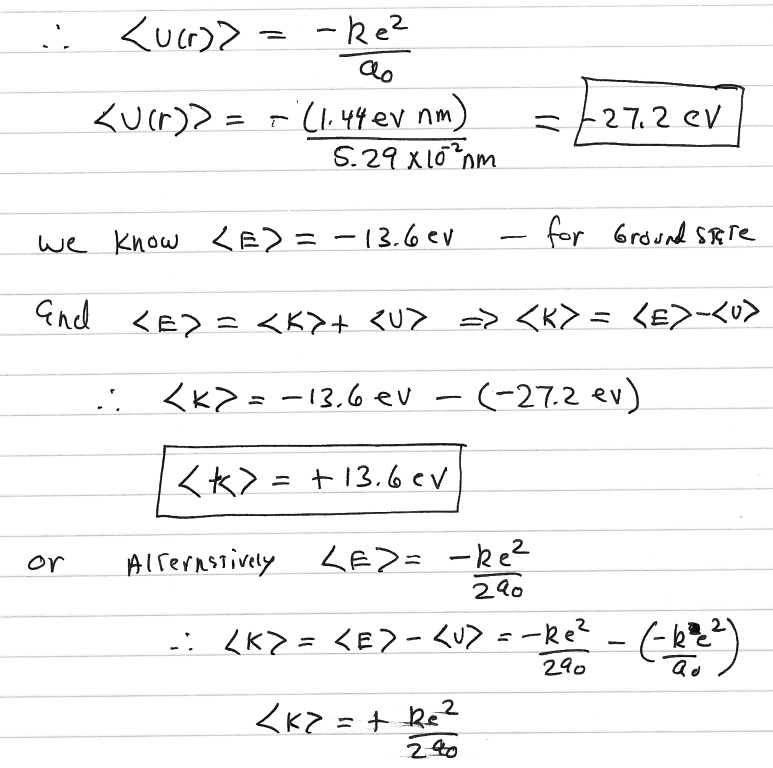 ∴ <U(r)> = -ke²/a₀
<U(r)> = - (1.44 eV nm)/(5.29 x10⁻² nm) = -27.2 eV
We Know <E> = -13.6 eV — for Ground State
and <E> = <K> + <U> => <K> = <E> - <U>
∴ <K> = -13.6 eV - (-27.2 eV)
<K> = +13.6 eV
or Alternatively <E> = -ke²/2a₀
∴ <K> = <E> - <U> = -ke²/2a₀ - (-ke²/a₀)
<K> = + ke²/2a₀